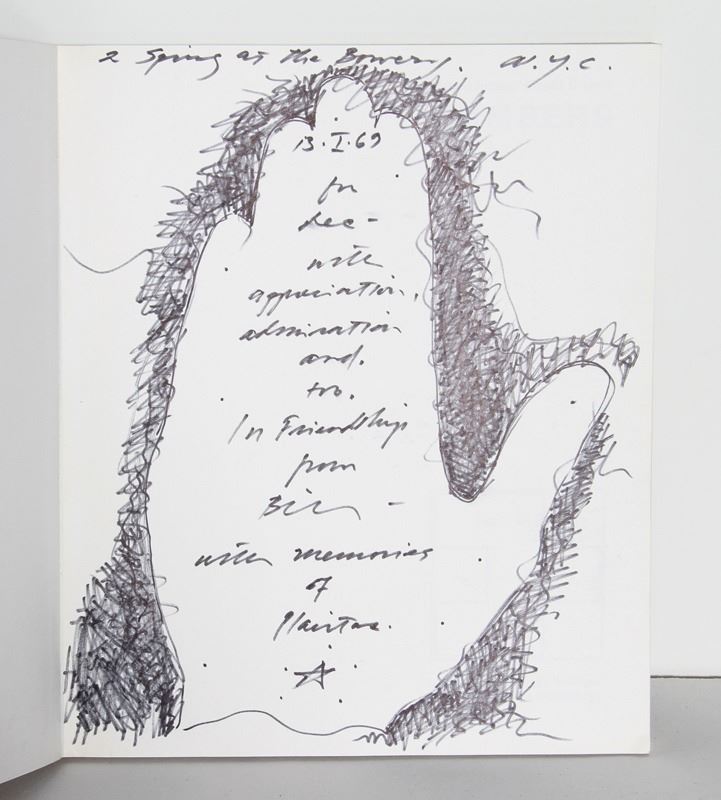 2 Spring at the Bowery. N.Y.C.
13.I.69
for
Lee-
with
appreciation,
admiration
and.
too.
In Friendship
from
Bill -
with memories
of